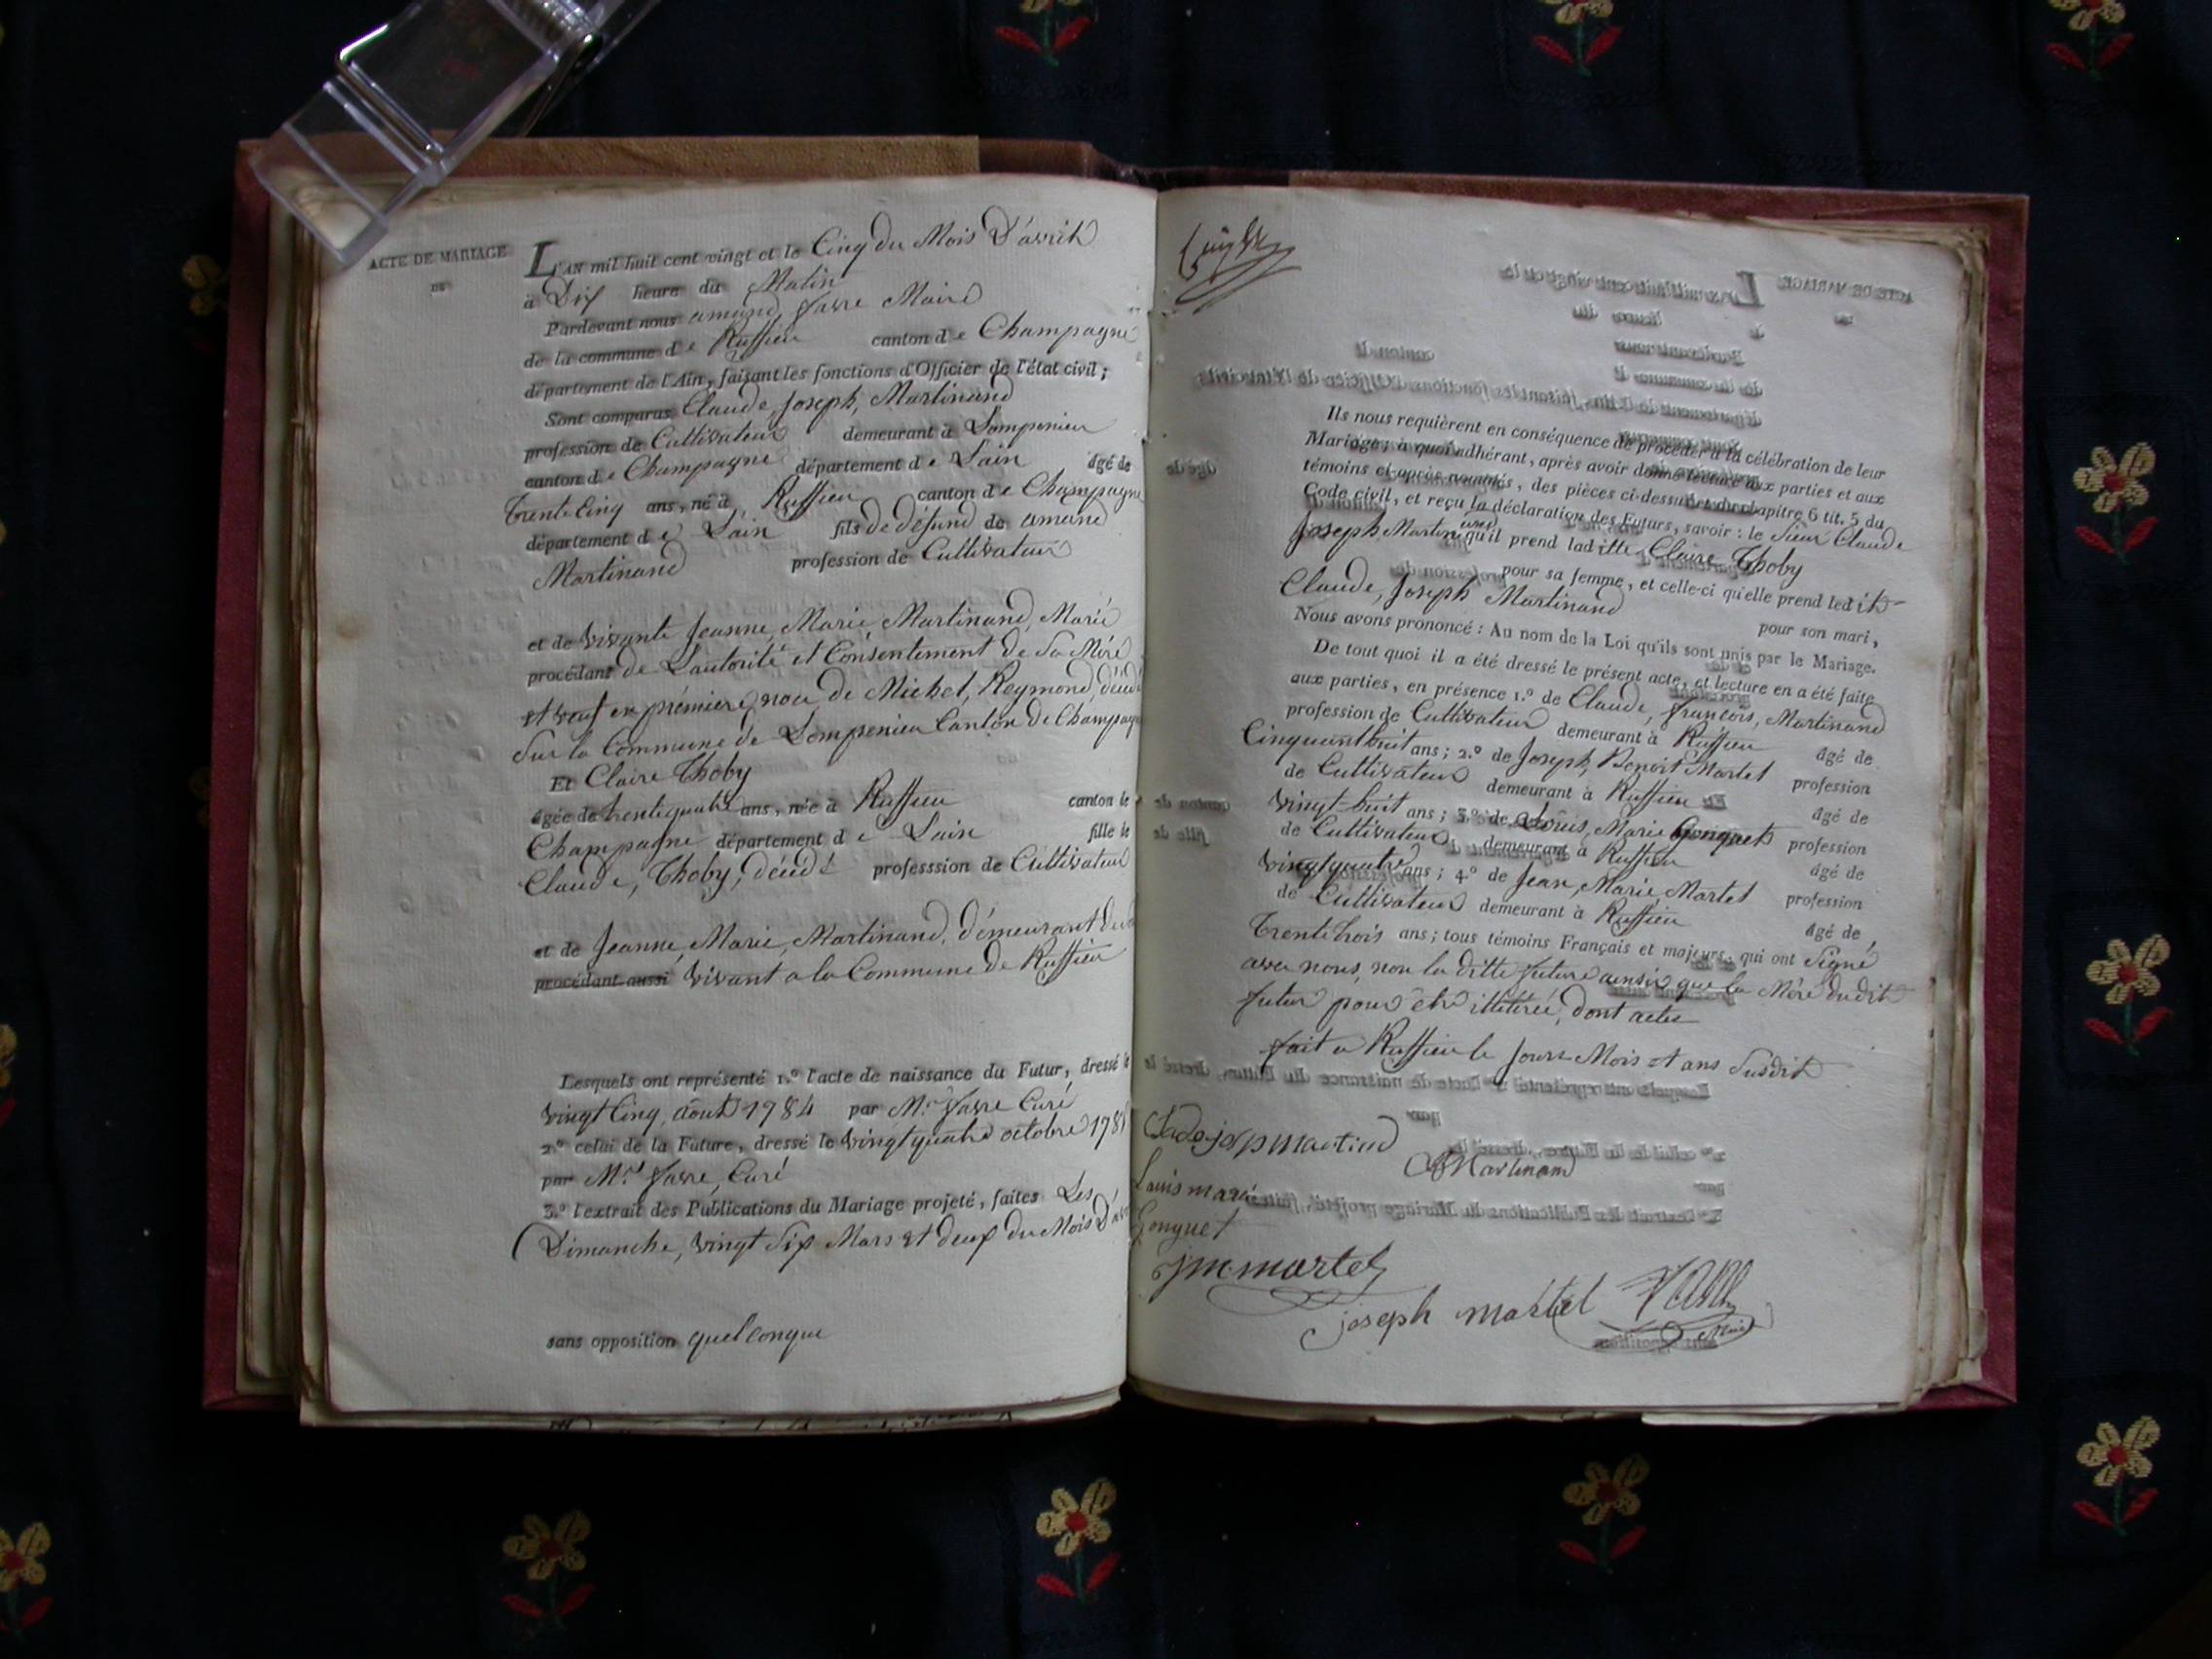 ACTE DE MARIAGE
DE
L'AN mil huit cent vingt et le Cinq du Mois D'avril
à Dix heure du Matin
Pardevant nous amand favre Maire
de la commune de Ruffieu canton de Champagne
département de l'Ain, faisant les fonctions d'Officier de l'état civil;
Sont comparus Claude, Joseph, Martinand
profession de Cultivateur demeurant à Lompenieu
canton de Champagne département de Lain âgé de
trente Cinq ans, né à Ruffieu canton de Champagne
département de Lain fils de défund de amand
Martinand profession de Cultivateur
et de vivante Jeanne, Marie, Martinand, Marié
procédant de Lautorité et Consentement de Sa Mére
et veuf en prémiere noce de Michel, Reymond,
Sur la Commune de Lompenieu Canton de Champagne
Et Claire Thoby
âgée de trente quatre ans, née à Ruffieu canton de
Champagne département de Lain fille de
Claude, Thoby, décédé professsion de Cultivateur
et de Jeanne, Marie, Martinand, démeurant
procédant aussi vivant a la Commune de Ruffieu
Lesquels ont représenté 1.º l'acte de naissance du Futur, dressé le
vingt Cinq, âout 1784 par Mr favre Curé
2.º celui de la Future, dressé le vingt quatre octobre
par Mr favre, Curé
3.º l'extrait des Publications du Mariage projeté, faites Les
Dimanche, vingt Six Mars et deux du Mois
sans opposition quelconque
Ils nous requièrent en conséquence de procéder à la célébration de leur
Mariage; à quoi adhérant, après avoir donné lecture aux parties et aux
témoins ci-après nommés, des pièces ci-dessus et du chapitre 6 tit. 5 du
Code civil, et reçu la déclaration des Futurs, savoir: le Sieur Claude
Joseph Martinand qu'il prend laditte Claire Thoby
pour sa femme, et celle-ci qu'elle prend ledit
Claude, Joseph Martinand pour son mari,
Nous avons prononcé: Au nom de la Loi qu'ils sont unis par le Mariage.
De tout quoi il a été dressé le présent acte, et lecture en a été faite
aux parties, en présence 1.º de Claude, françois, Martinand
profession de Cultivateur demeurant à Ruffieu âgé de
Cinquant huit ans; 2.º de Joseph, Benoit Martel profession
de Cultivateur demeurant à Ruffieu âgé de
vingt-huit ans; 3.º de Louis, Marie Gonguet profession
de Cultivateur demeurant à Ruffieu âgé de
vingt quatre ans; 4.º de Jean, Marie, Martel profession
de Cultivateur demeurant à Ruffieu âgé de
trente trois ans; tous témoins Français et majeurs, qui ont Signé
avec nous, non la ditte future ainsi que la Mére dudit
futur pour etre illitirée, dont acte
fait a Ruffieu le Jours Mois et ans Susdit
Martinand
Louis marie
Gonguet
jmmartel
joseph martel
Maire